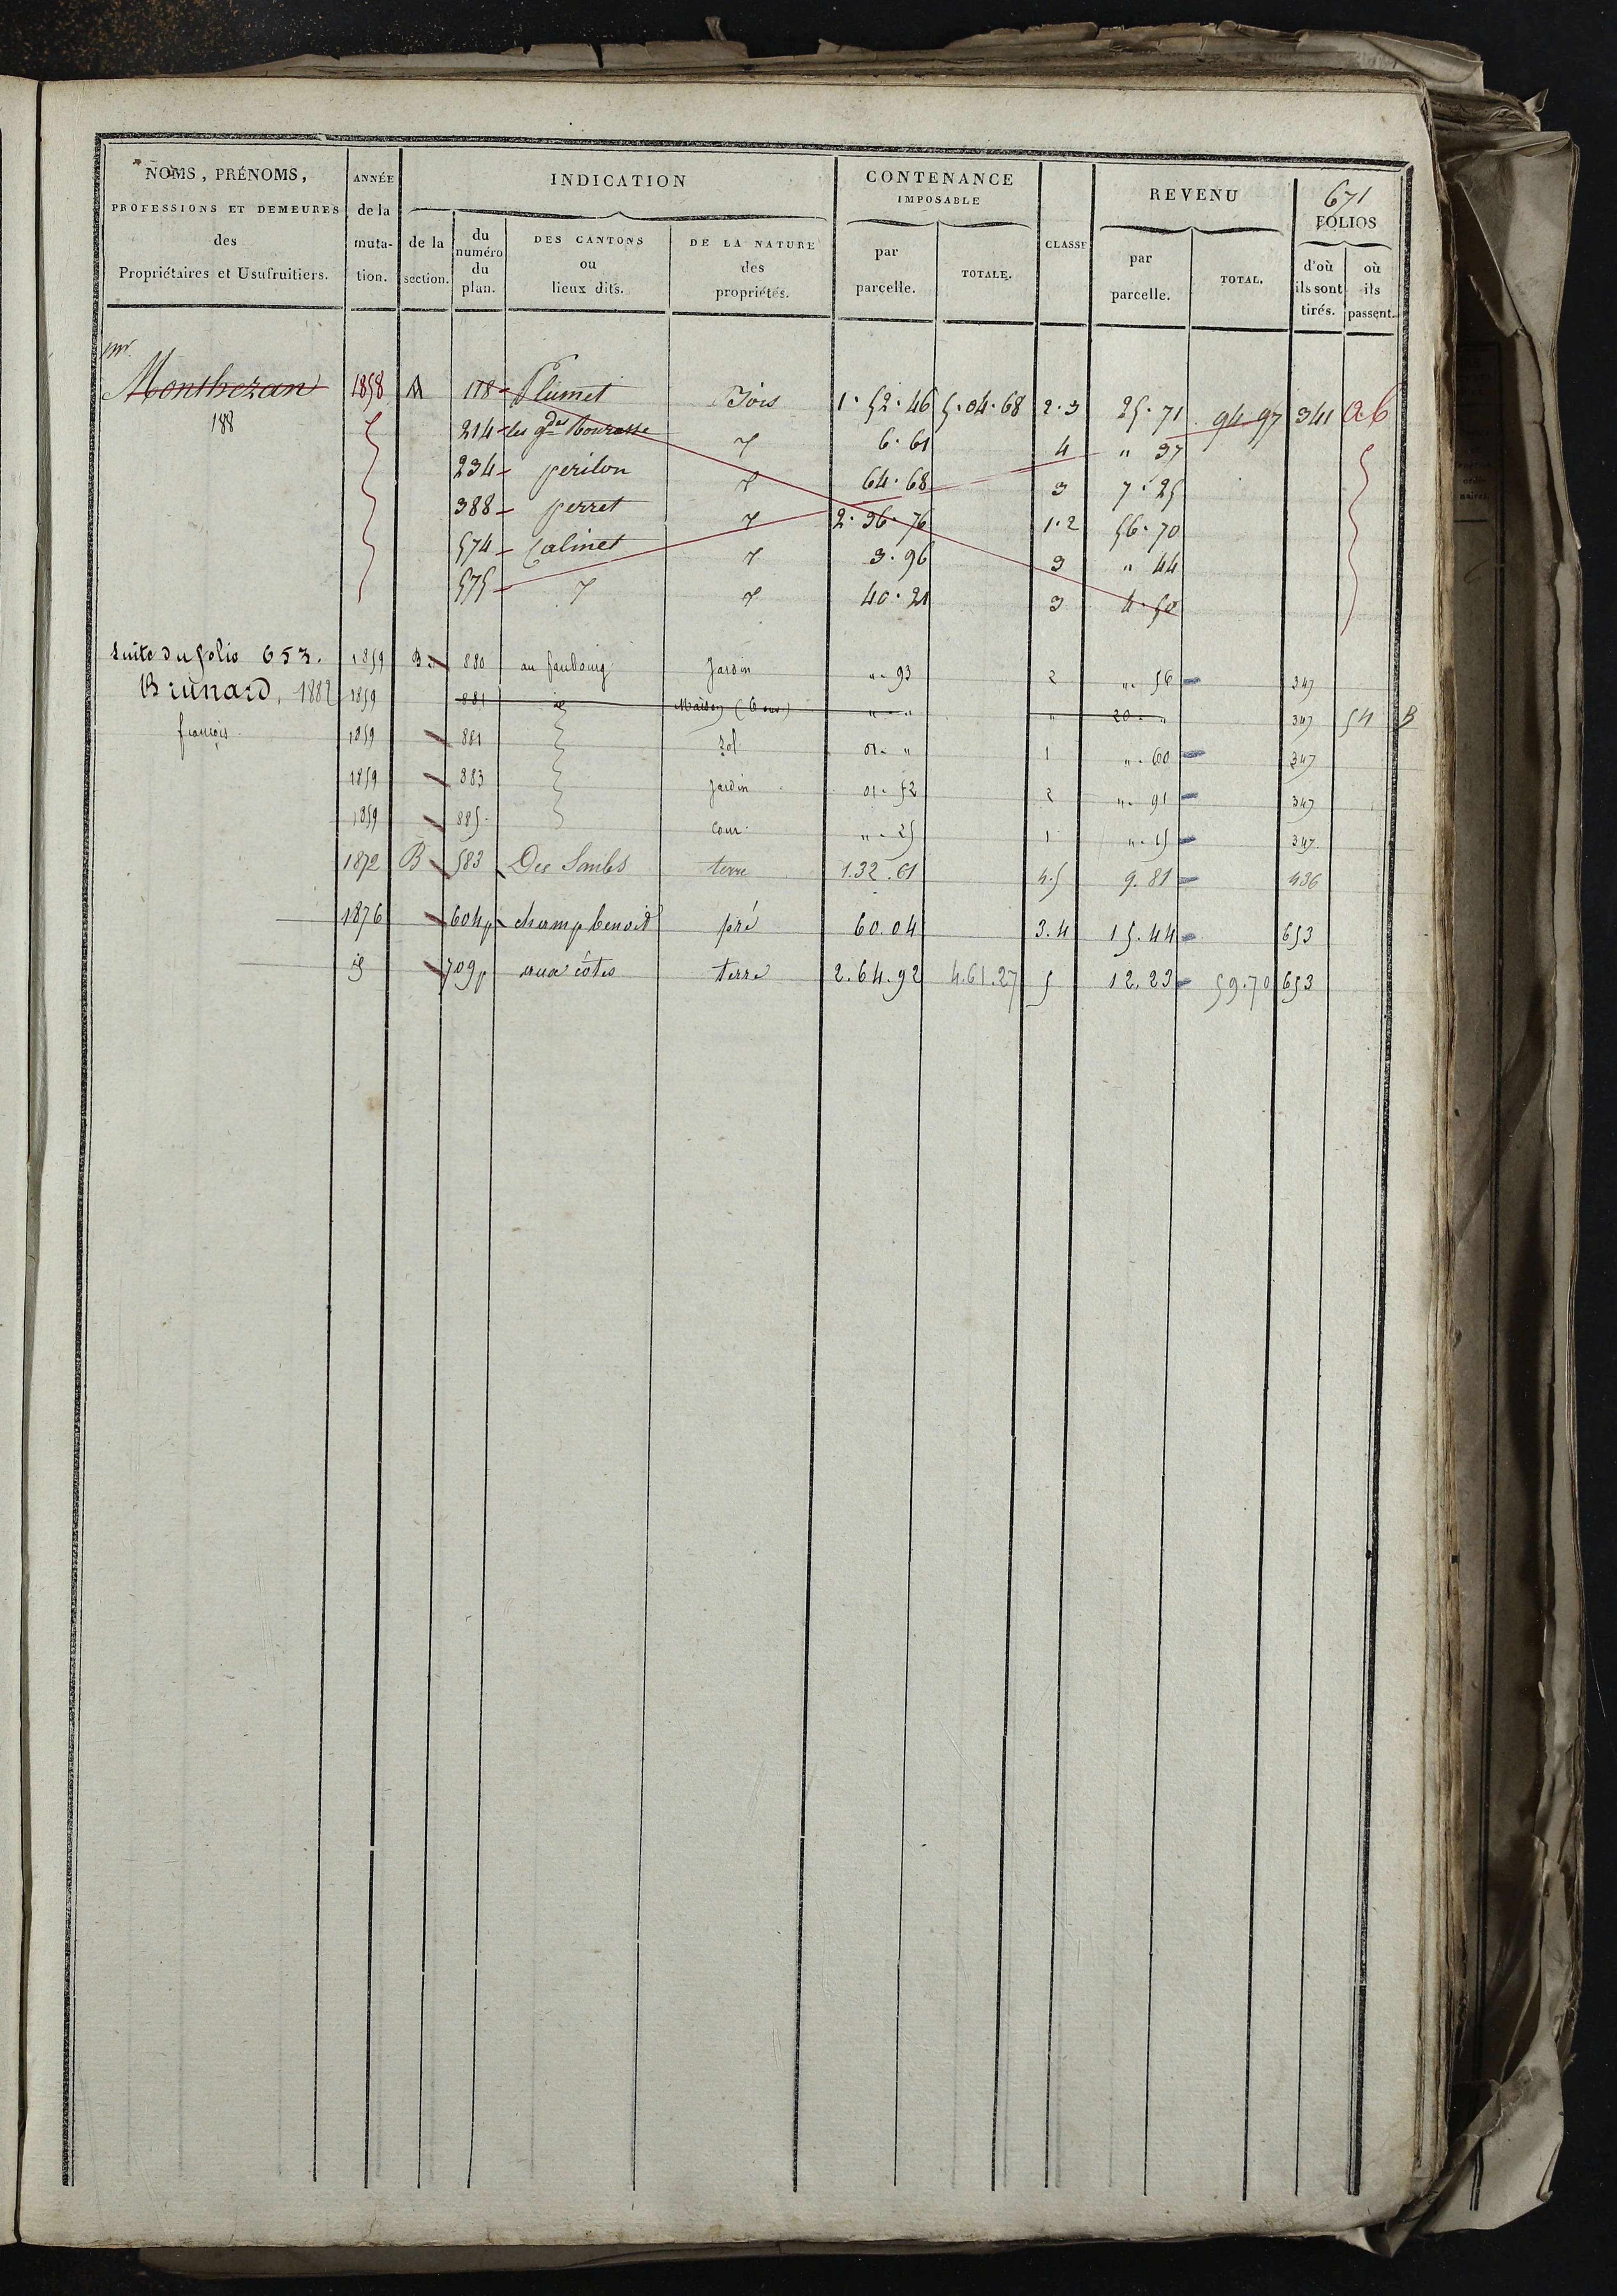 671
NOMS, PRÉNOMS, PROFESSIONS ET DEMEURES des Propriétaires et Usufruitiers.
ANNÉE de la mutation.
INDICATION
de la section.
du numéro du plan.
DES CANTONS ou lieux dits.
DE LA NATURE des propriétés.
CONTENANCE IMPOSABLE
par parcelle.
TOTALE.
CLASSE
REVENU
par parcelle.
TOTAL.
FOLIOS
d'où ils sont tirés.
où ils passent.
Montbezan 1858 M 118 Plumet Bois 1.52.46 5.04.68 2.3 25.71 94.97 341 ab
188 214 les gdes 6.61 4 " 37
234 perilon 64.68 3 7.25
388 perret 2.36.76 1.2 56.70
574 Calinet 3.96 3 " 44
575 40.21 3 4.50
Suite du folio 653. 1859 B 880 au faubourg Jardin " 93 2 " 56 347
Brunard, 1882 1859 881 id Maison " " " 20 " 347 54 B
françois 1859 881 Sol 01 " 1 " 60 347
1859 883 Jardin 01 52 2 " 91 347
1859 885 Cour " 25 1 " 15 347
1872 B 583 Des terre 1.32.61 4.5 9.81 436
1876 604p champ benoit pré 60.04 3.4 15.44 653
id 709p aux côtes terre 2.64.92 4.61.27 5 12.23 59.70 653